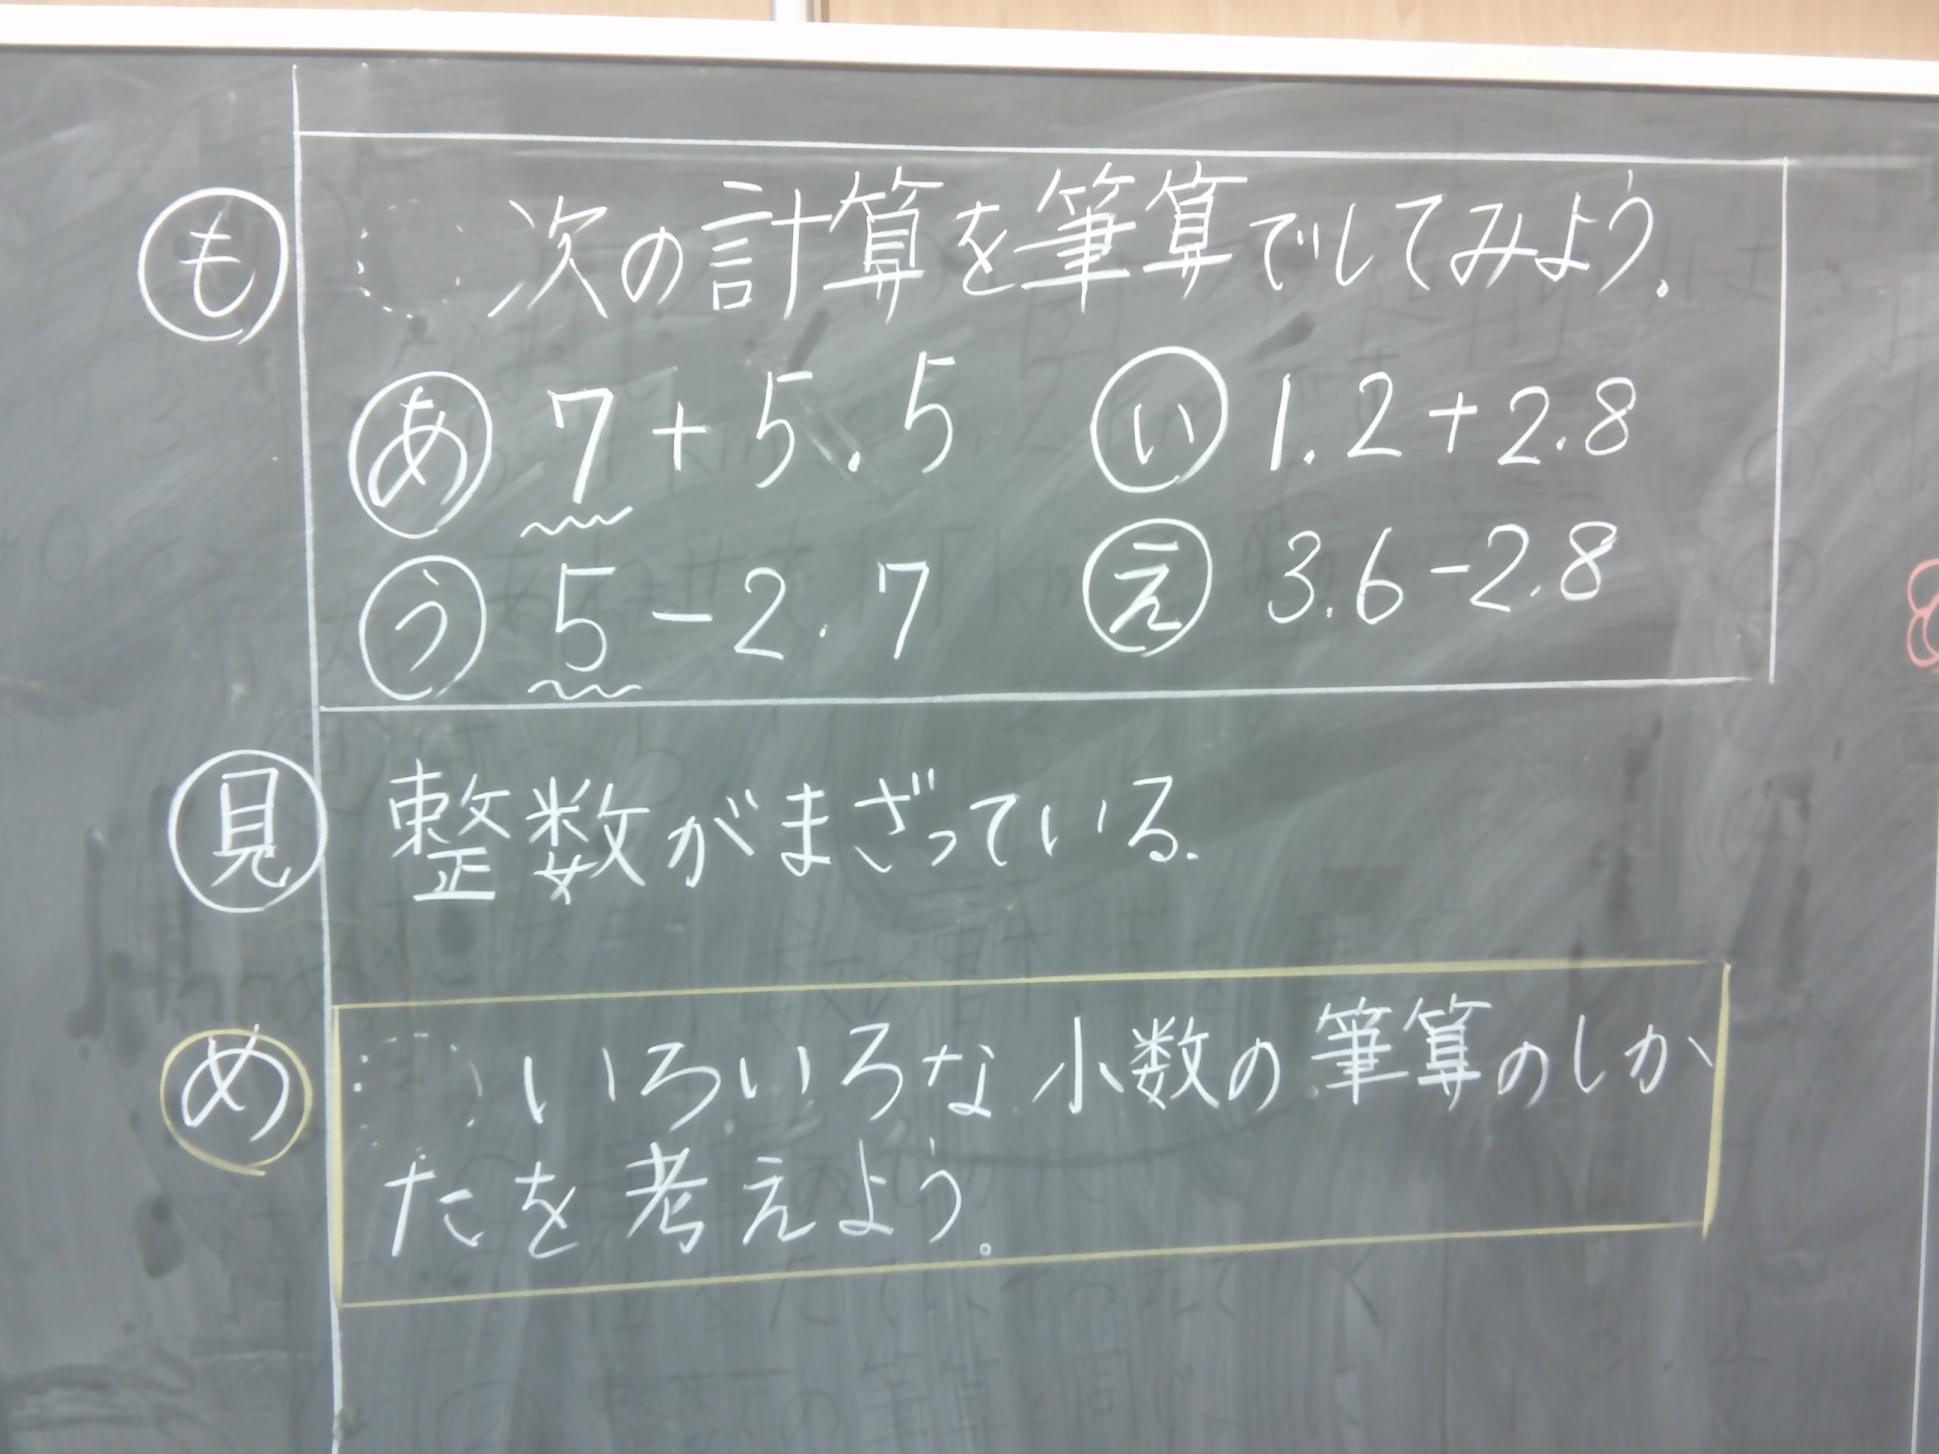 も 次の計算を筆算でしてみよう。
あ 7+5.5 い 1.2+2.8
う 5-2.7 え 3.6-2.8
見 整数がまざっている。
め いろいろな小数の筆算のしか
たを考えよう。